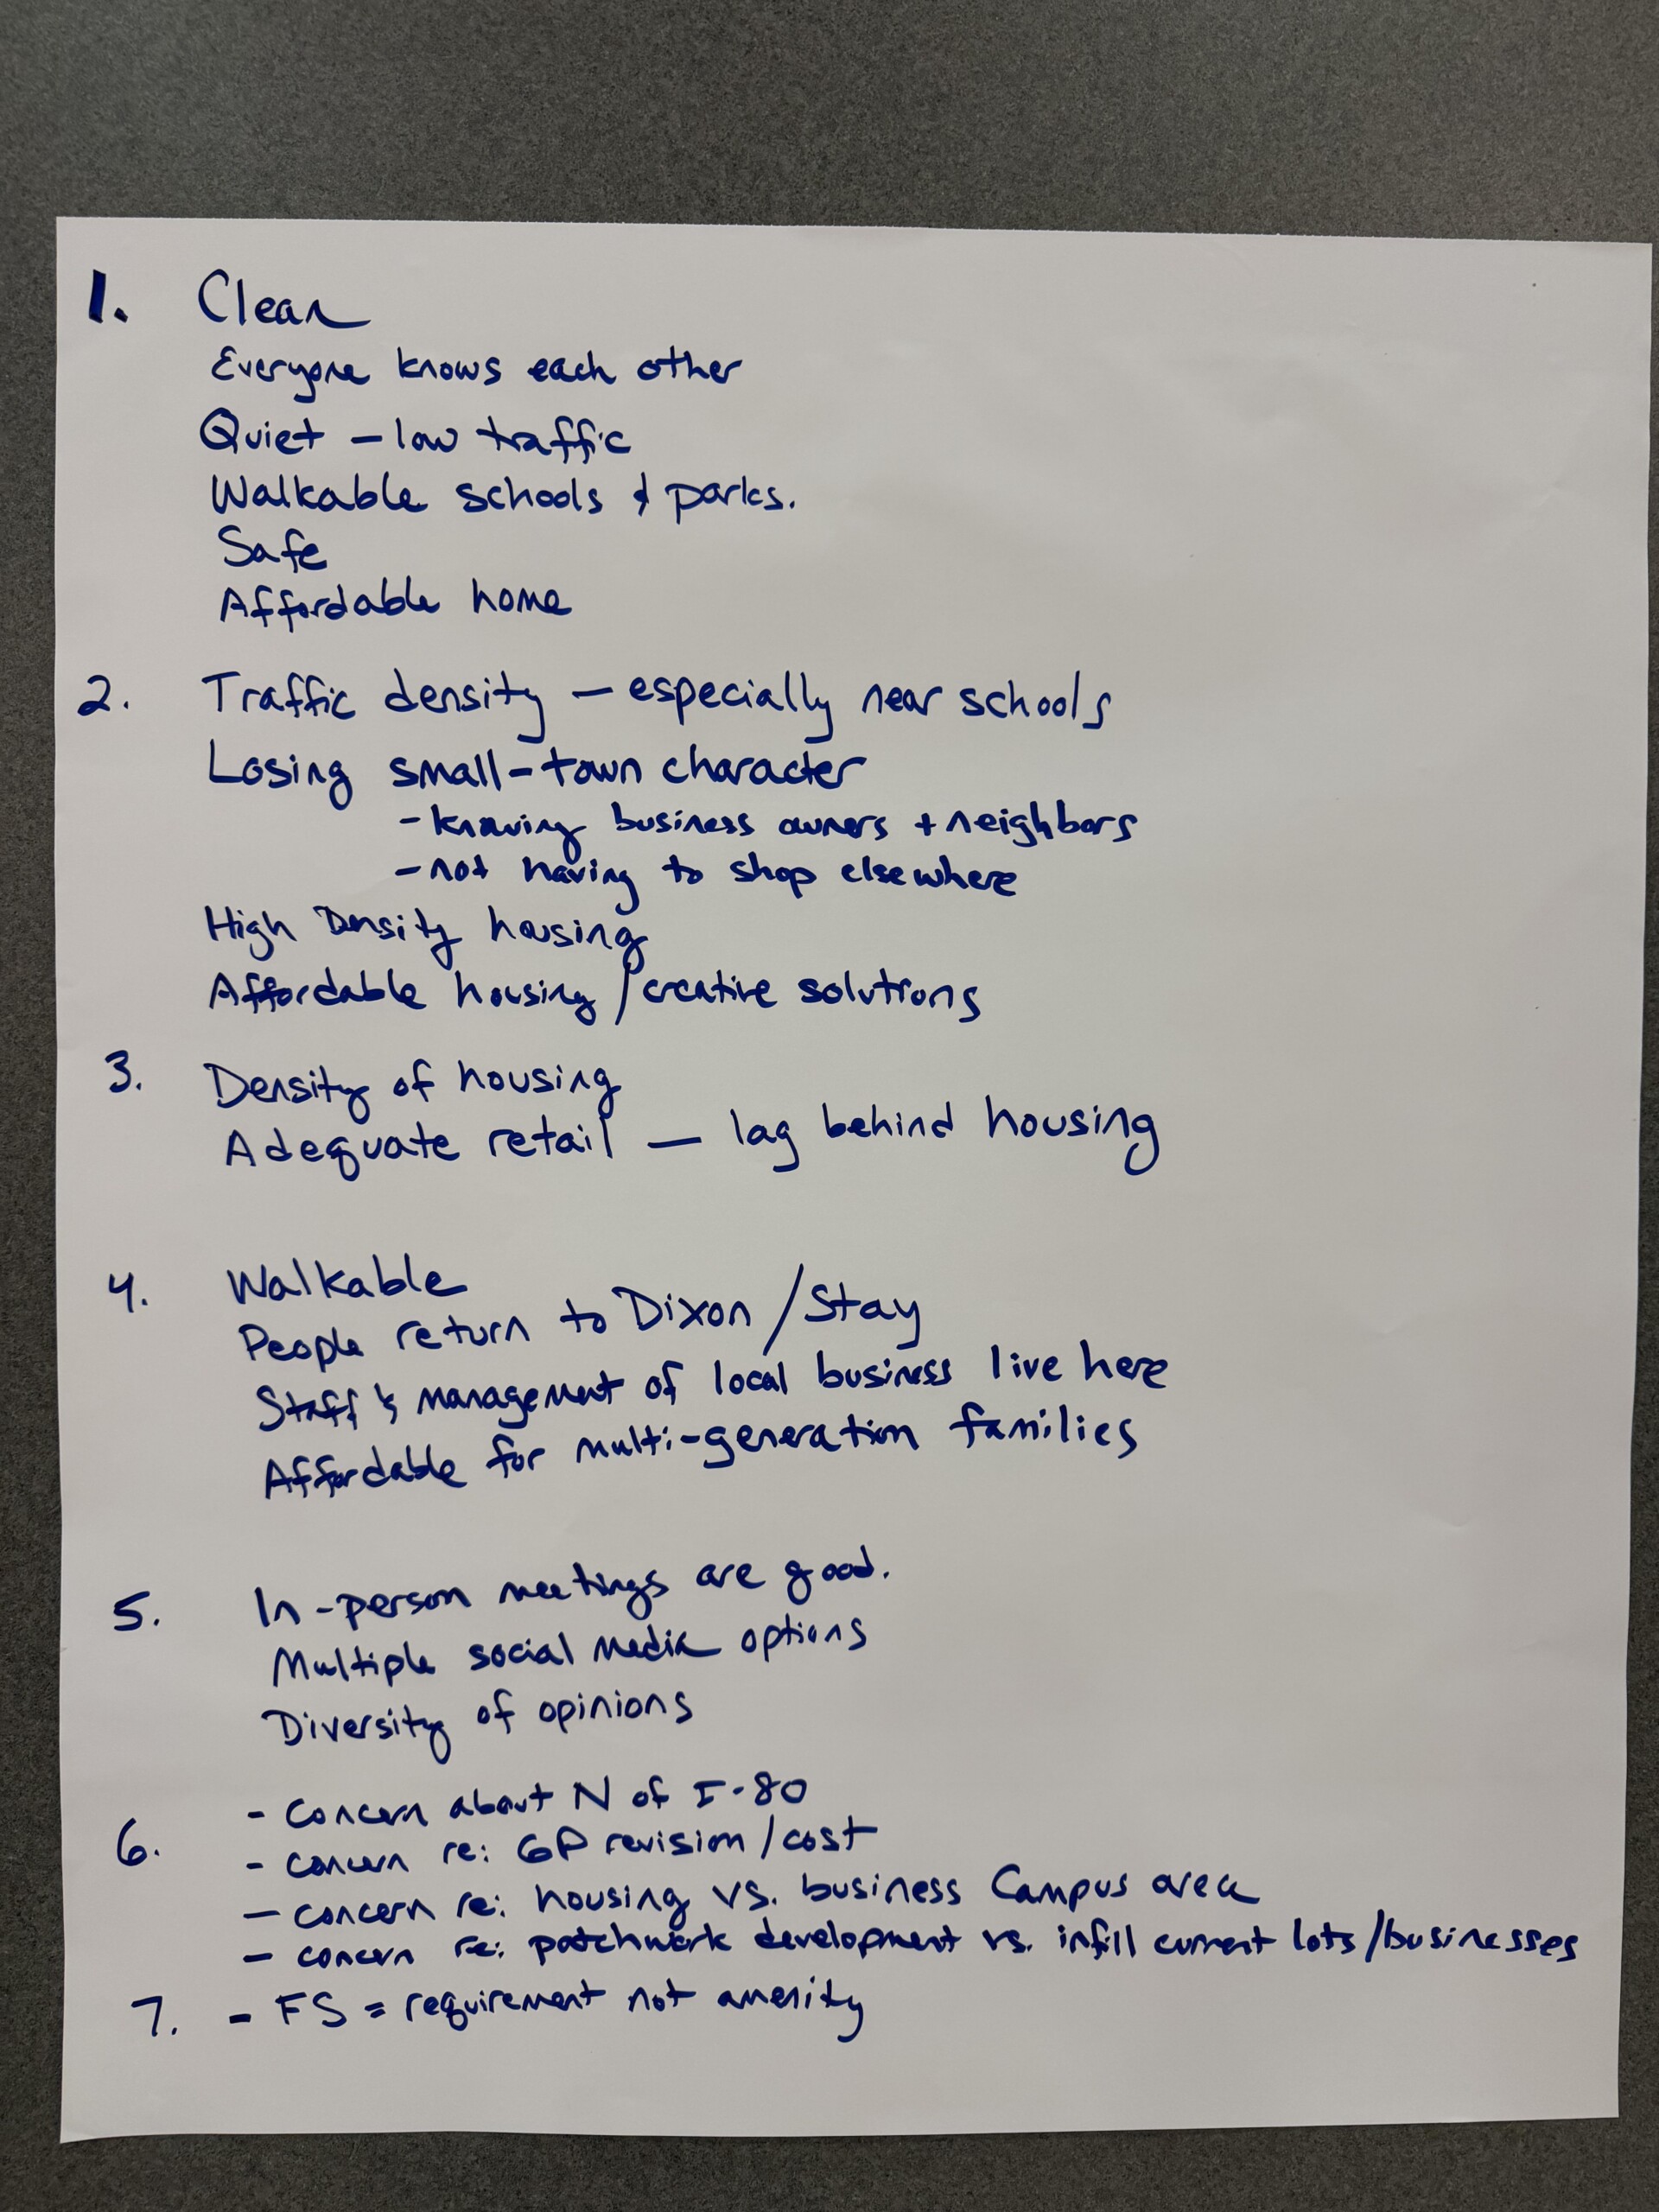 1. Clean
Everyone knows each other
Quiet – low traffic
Walkable schools & parks.
Safe
Affordable home
2. Traffic density – especially near schools
Losing small-town character
- knowing business owners + neighbors
- not having to shop elsewhere
High Density housing
Affordable housing / creative solutions
3. Density of housing
Adequate retail — lag behind housing
4. Walkable
People return to Dixon / Stay
Staff & management of local business live here
Affordable for multi-generation families
5. In-person meetings are good.
Multiple social media options
Diversity of opinions
- Concern about N of I-80
6. - concern re: GP revision / cost
- concern re: housing vs. business Campus area
- concern re: patchwork development vs. infill current lots / businesses
7. - FS = requirement not amenity